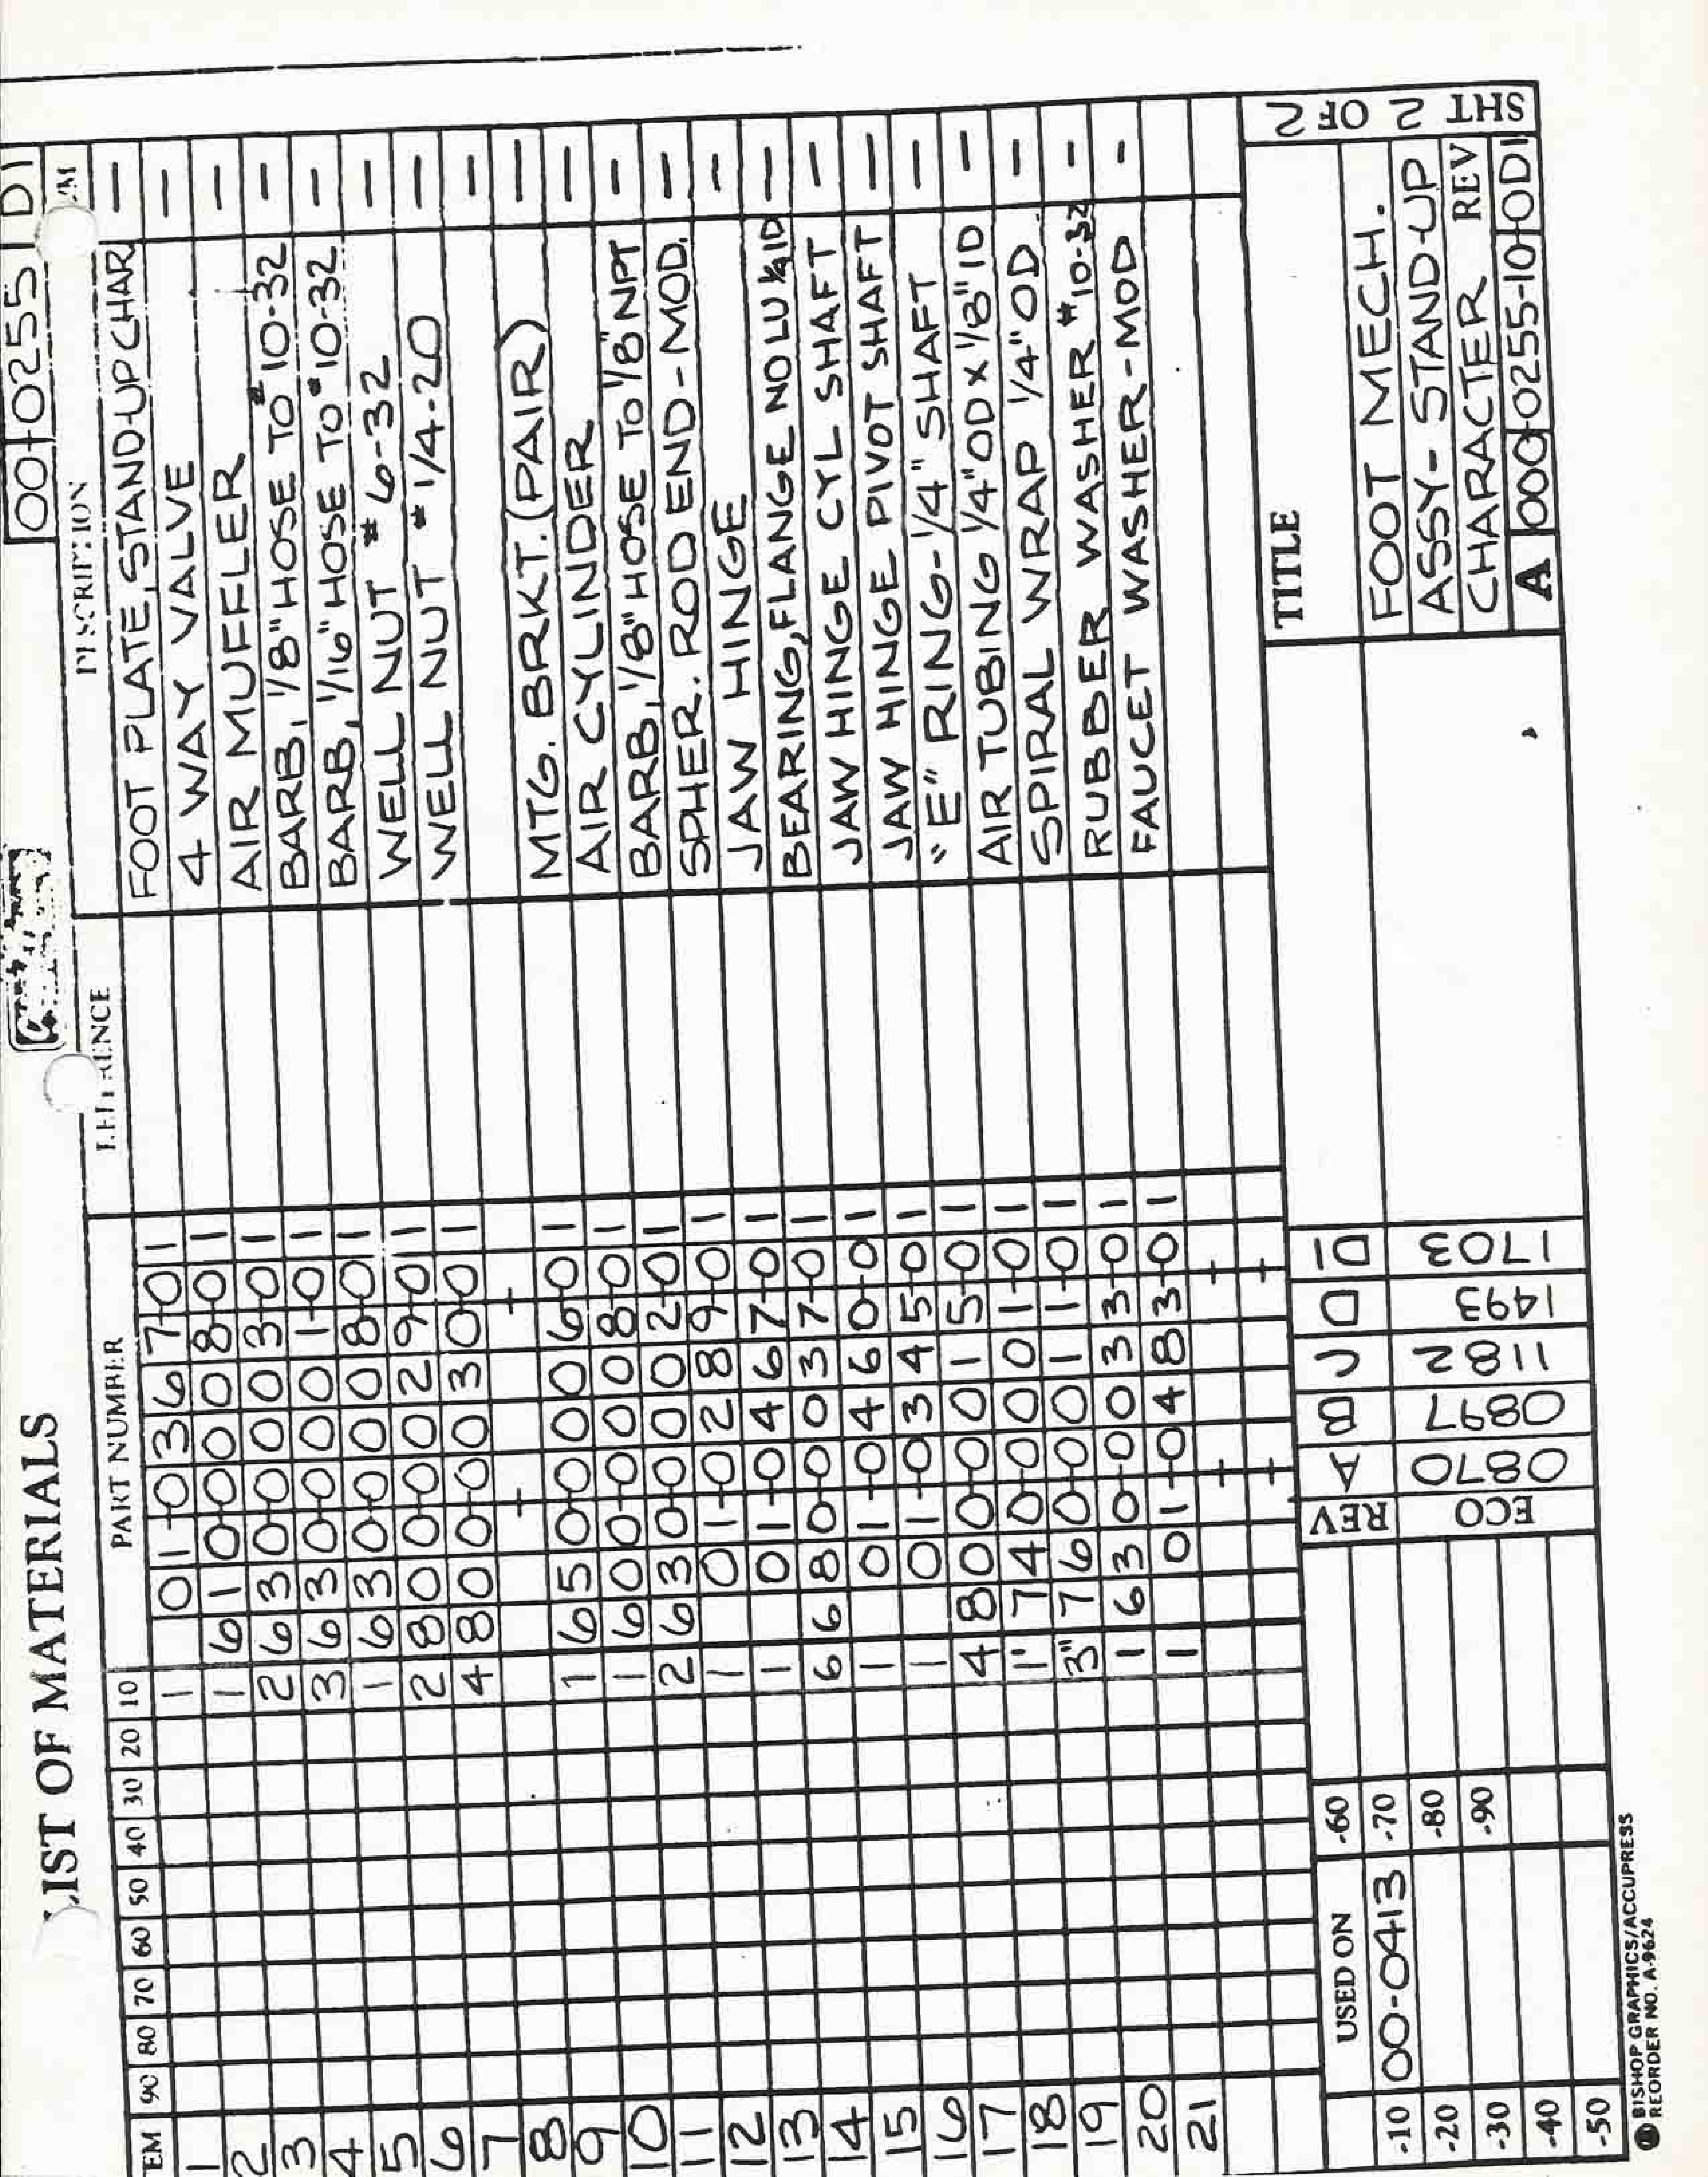 00-0255 D1
LIST OF MATERIALS
90 80 70 60 50 40 30 20 10 PART NUMBER DESCRIPTION
1 1 01-0367-01 FOOT PLATE, STAND-UP CHAR —
2 1 610-0008-01 4 WAY VALVE —
3 2 630-0003-01 AIR MUFFLER —
4 3 630-0001-01 BARB, 1/8" HOSE TO #10-32 —
5 1 630-0008-01 BARB, 1/16" HOSE TO #10-32 —
6 2 800-0029-01 WELL NUT #6-32 —
7 4 800-0030-01 WELL NUT #1/4-20 —
8 —
9 1 650-0006-01 MTG. BRKT. (PAIR) —
10 1 600-0008-01 AIR CYLINDER —
11 2 630-0002-01 BARB, 1/8" HOSE TO 1/8" NPT —
12 1 01-0289-01 SPHER. ROD END-MOD. —
13 1 01-0467-01 JAW HINGE —
14 6 680-0037-01 BEARING, FLANGE NOLU 1/4 ID —
15 1 01-0460-01 JAW HINGE CYL SHAFT —
16 1 01-0345-01 JAW HINGE PIVOT SHAFT —
17 4 800-0015-01 "E" RING-1/4" SHAFT —
18 1' 740-0001-01 AIR TUBING 1/4" OD X 1/8" ID —
19 3" 760-0011-01 SPIRAL WRAP 1/4" OD. —
20 1 630-0033-01 RUBBER WASHER #10-32 —
21 1 01-0483-01 FAUCET WASHER-MOD —
USED ON
-10 00-0413
-20
-30
-40
-50
-60
-70
-80
-90
REV A B C D D1
ECO 0870 0897 1182 1493 1703
TITLE
FOOT MECH.
ASSY- STAND-UP
CHARACTER REV
A 000-0255-10 0D1
SHT 2 OF 2
BISHOP GRAPHICS/ACCUPRESS
REORDER NO. A-9624